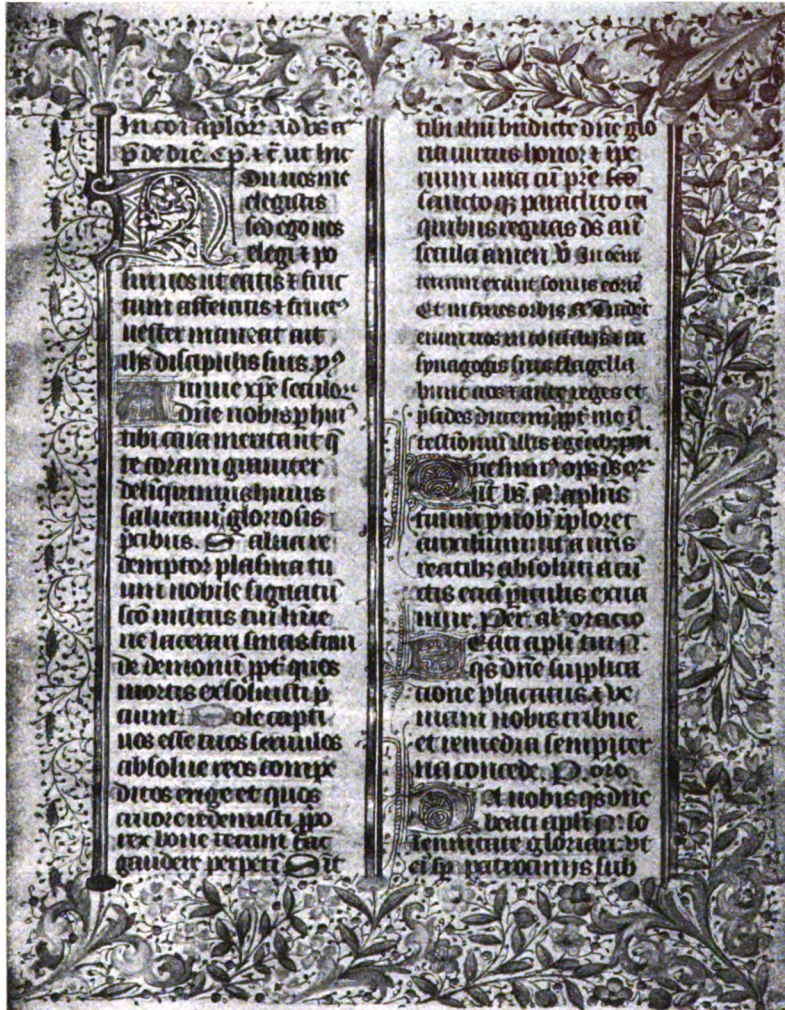 In coi aplor. Ad vs a
p de dic. Cp. & c. ut hnc
Non uos me
elegistis
sed ego uos
elegi & po
sui uos ut eatis & fruc
tum afferatis & fructꝰ
uester maneat ait
ihs discipulis suis. p
Annue xpe seculoꝝ
dne nobis p huiꝰ
tibi cara merita ut q
te coram grauiter
deliquimus huius
soluantꝰ gloriosis
pcibus. Salua re
demptor plasma tu
um nobile signatū
sco uultus tui lumi
ne lacerari sinas frau
de demonū ppt quos
mortis exsoluisti p
cium. Dole capti
uos esse tuos seruulos
absolue reos compe
ditos erige et quos
cruore redemisti ppo
rex bone tecum fac
gaudere perpeti Sit
tibi ihu bndicte dne glo
ria uirtus honor & ipe
rium una cū pre
sancto qꝫ paraclito cū
quibus regnas ds an
secula amen. V In oem
terram exiuit sonus eorū
Et in fines orbis
enim uos in consilijs & in
synagogis suis flagella
bunt uos & ante reges et
psides ducemī ppt me ī
testimoniū illis & gentibꝫ
Quesumꝰ ops ds or
ut bs. N. aplus
tuum p nob imploret
auxilium ut a nris
reatibꝫ absoluti a cū
ctis eciā piculis exua
mur. Per. al oracio
Beati apli tui N.
qs dne supplica
cione placatus & ve
niam nobis tribue
et remedia sempiter
na concede. P. oro
Da nobis qs dne
beati apli N. so
lennitate gloriari. vt
eiꝰ sp patrocinijs sub